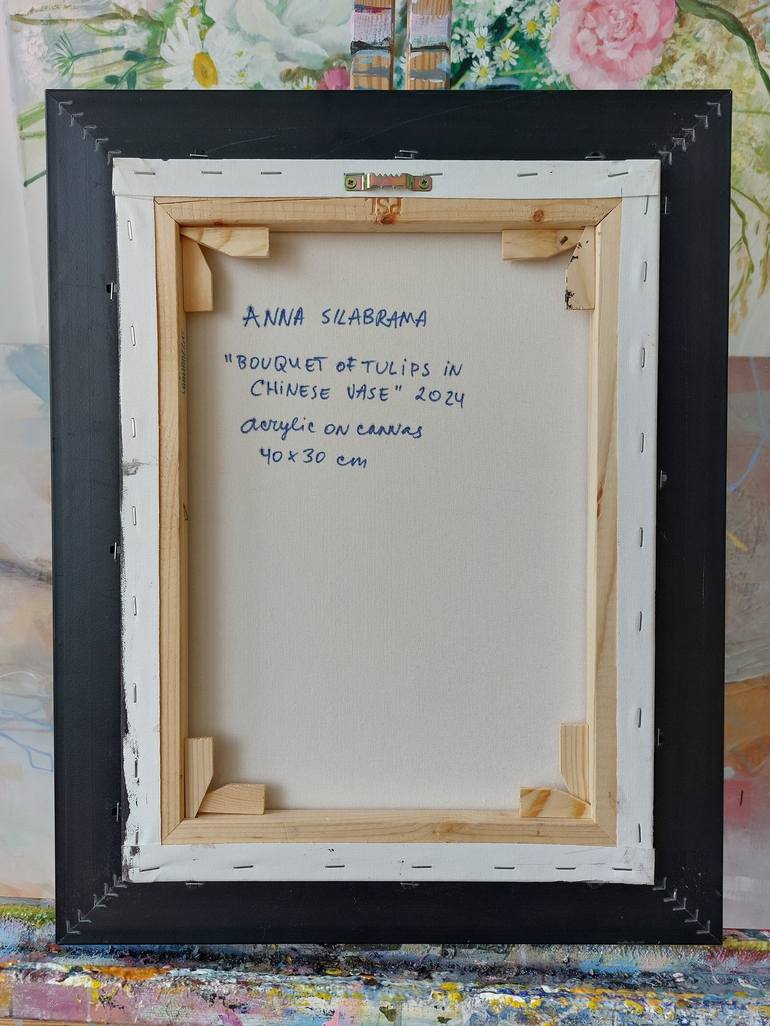 ANNA SILABRAMA
"BOUQUET OF TULIPS IN
CHINESE VASE" 2024
acrylic on canvas
40x30 cm